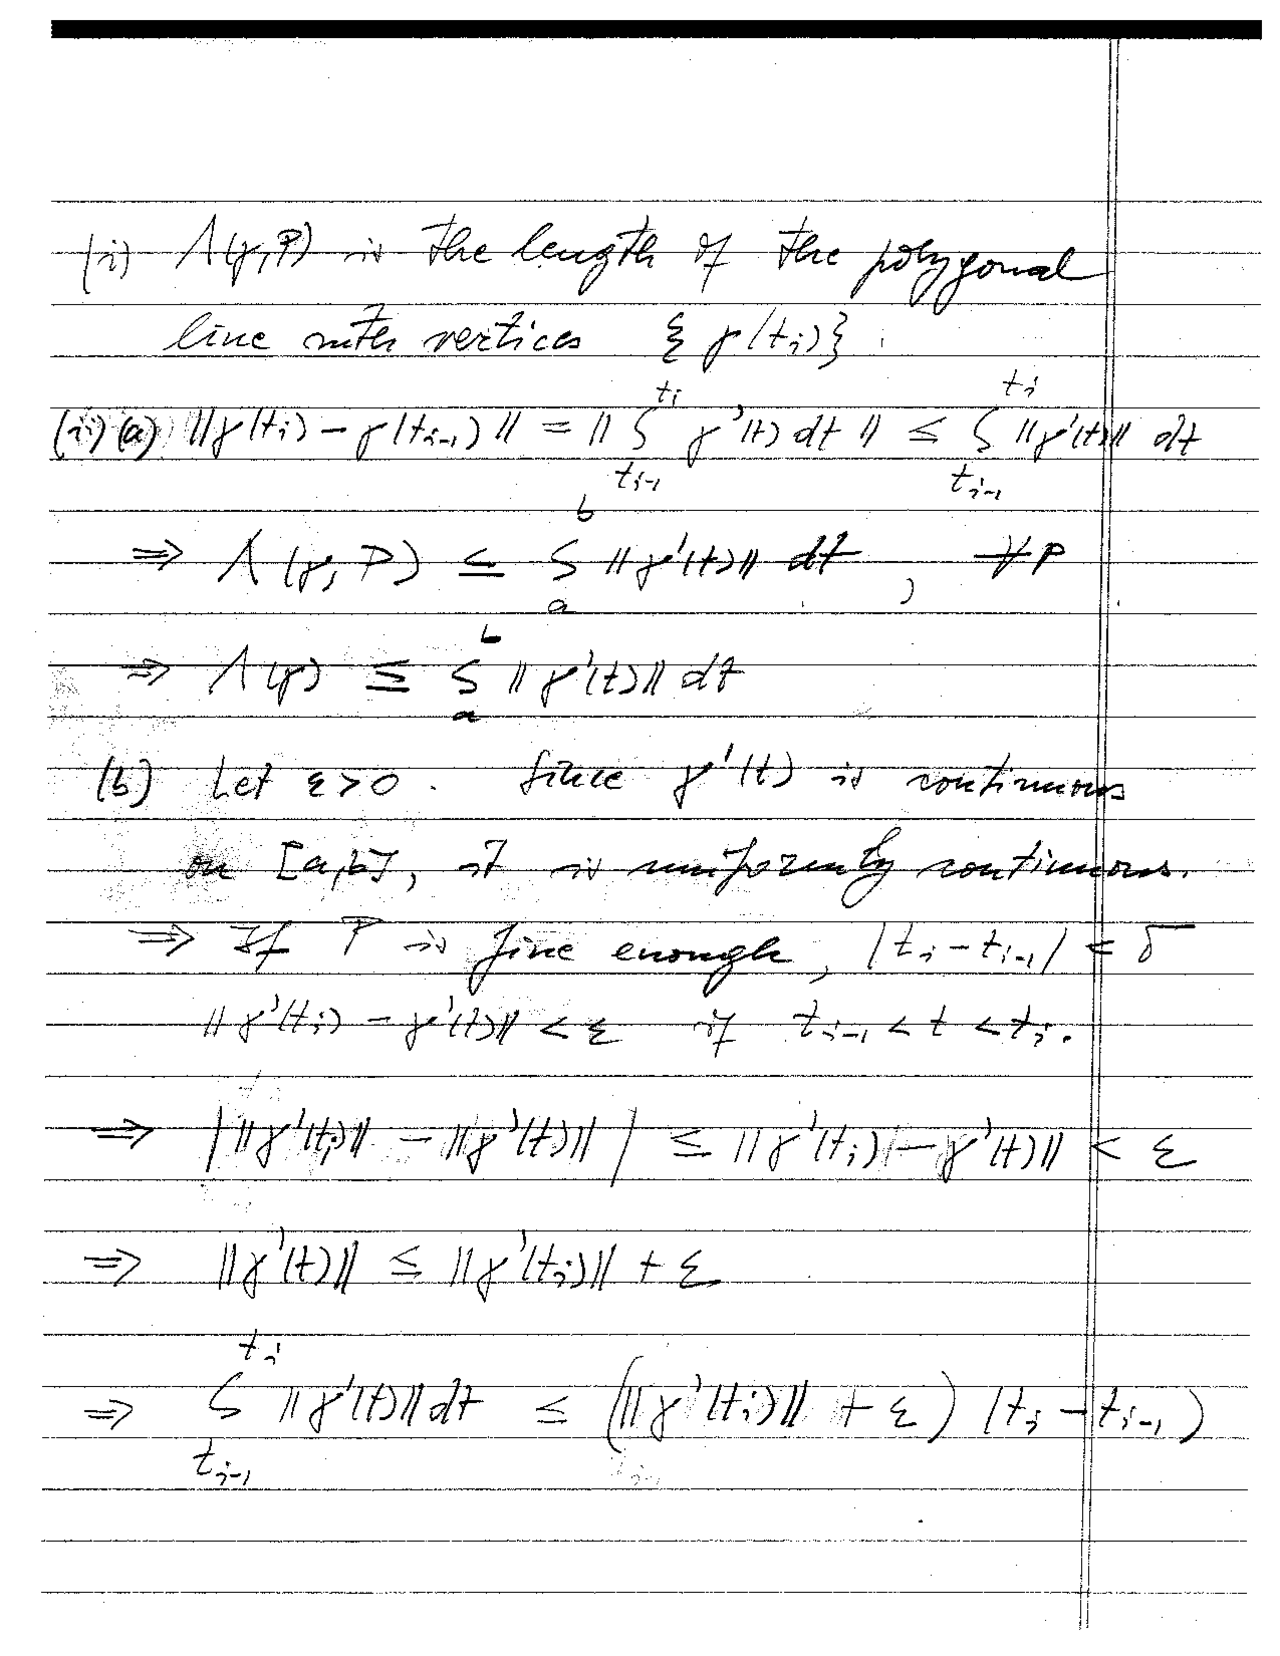 (i) Λ(γ,P) is the length of the polygonal
line with vertices {γ(tᵢ)}.
(ii)(a) ||γ(tᵢ) - γ(tᵢ₋₁)|| = ||∫_{tᵢ₋₁}^{tᵢ} γ'(t) dt|| ≤ ∫_{tᵢ₋₁}^{tᵢ} ||γ'(t)|| dt
⇒ Λ(γ, P) ≤ ∫_a^b ||γ'(t)|| dt, ∀P
⇒ Λ(γ) ≤ ∫_a^b ||γ'(t)|| dt
(b) Let ε>0. Since γ'(t) is continuous
on [a,b], it is uniformly continuous.
⇒ If P is fine enough, |tᵢ - tᵢ₋₁| < δ
||γ'(tᵢ) - γ'(t)|| < ε if tᵢ₋₁ < t < tᵢ.
⇒ | ||γ'(tᵢ)|| - ||γ'(t)|| | ≤ ||γ'(tᵢ) - γ'(t)|| < ε
⇒ ||γ'(t)|| ≤ ||γ'(tᵢ)|| + ε
⇒ ∫_{tᵢ₋₁}^{tᵢ} ||γ'(t)|| dt ≤ (||γ'(tᵢ)|| + ε) (tᵢ - tᵢ₋₁)